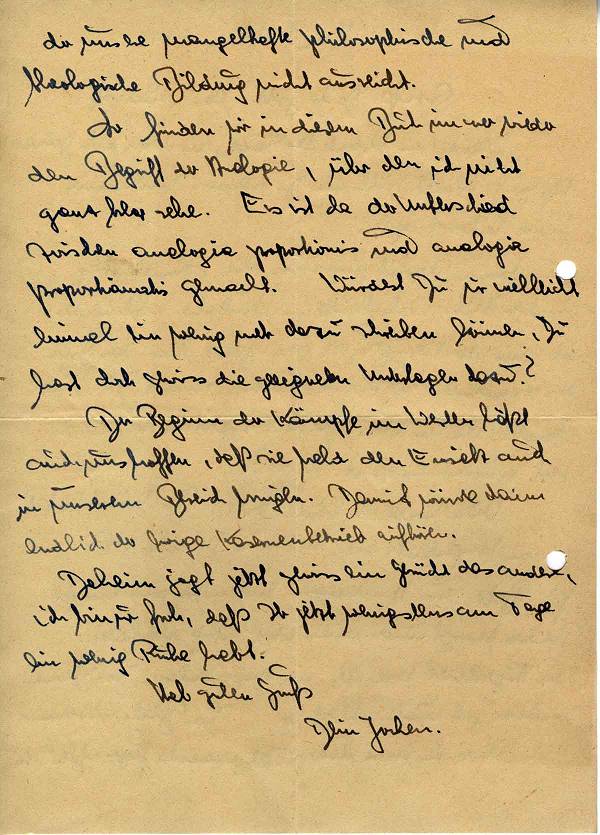 da unsere mangelhafte philosophische und
theologische Bildung nicht ausreicht.
Da finden wir in diesem Buch immer wieder
den Begriff der Analogie, über den ich nicht
ganz klar sehe. Es ist da der Unterschied
zwischen analogia proportionis und analogia
proportionalitatis gemacht. Würdest Du mir vielleicht
einmal ein wenig mehr dazu schreiben können, Du
hast doch gewiss die geeigneten Unterlagen dazu?
Der Beginn der Kämpfe im Westen läßt
auch uns hoffen, daß sie bald den Einsatz auch
in unserem Bereich bringen. Damit würde dann
endlich der hiesige Kasernenbetrieb aufhören.
Daheim jagt jetzt gewiss ein Gerücht das andere,
ich bin nur froh, daß Ihr jetzt wenigstens am Tage
ein wenig Ruhe habt.
Hab guten Gruß
Dein Jochen.